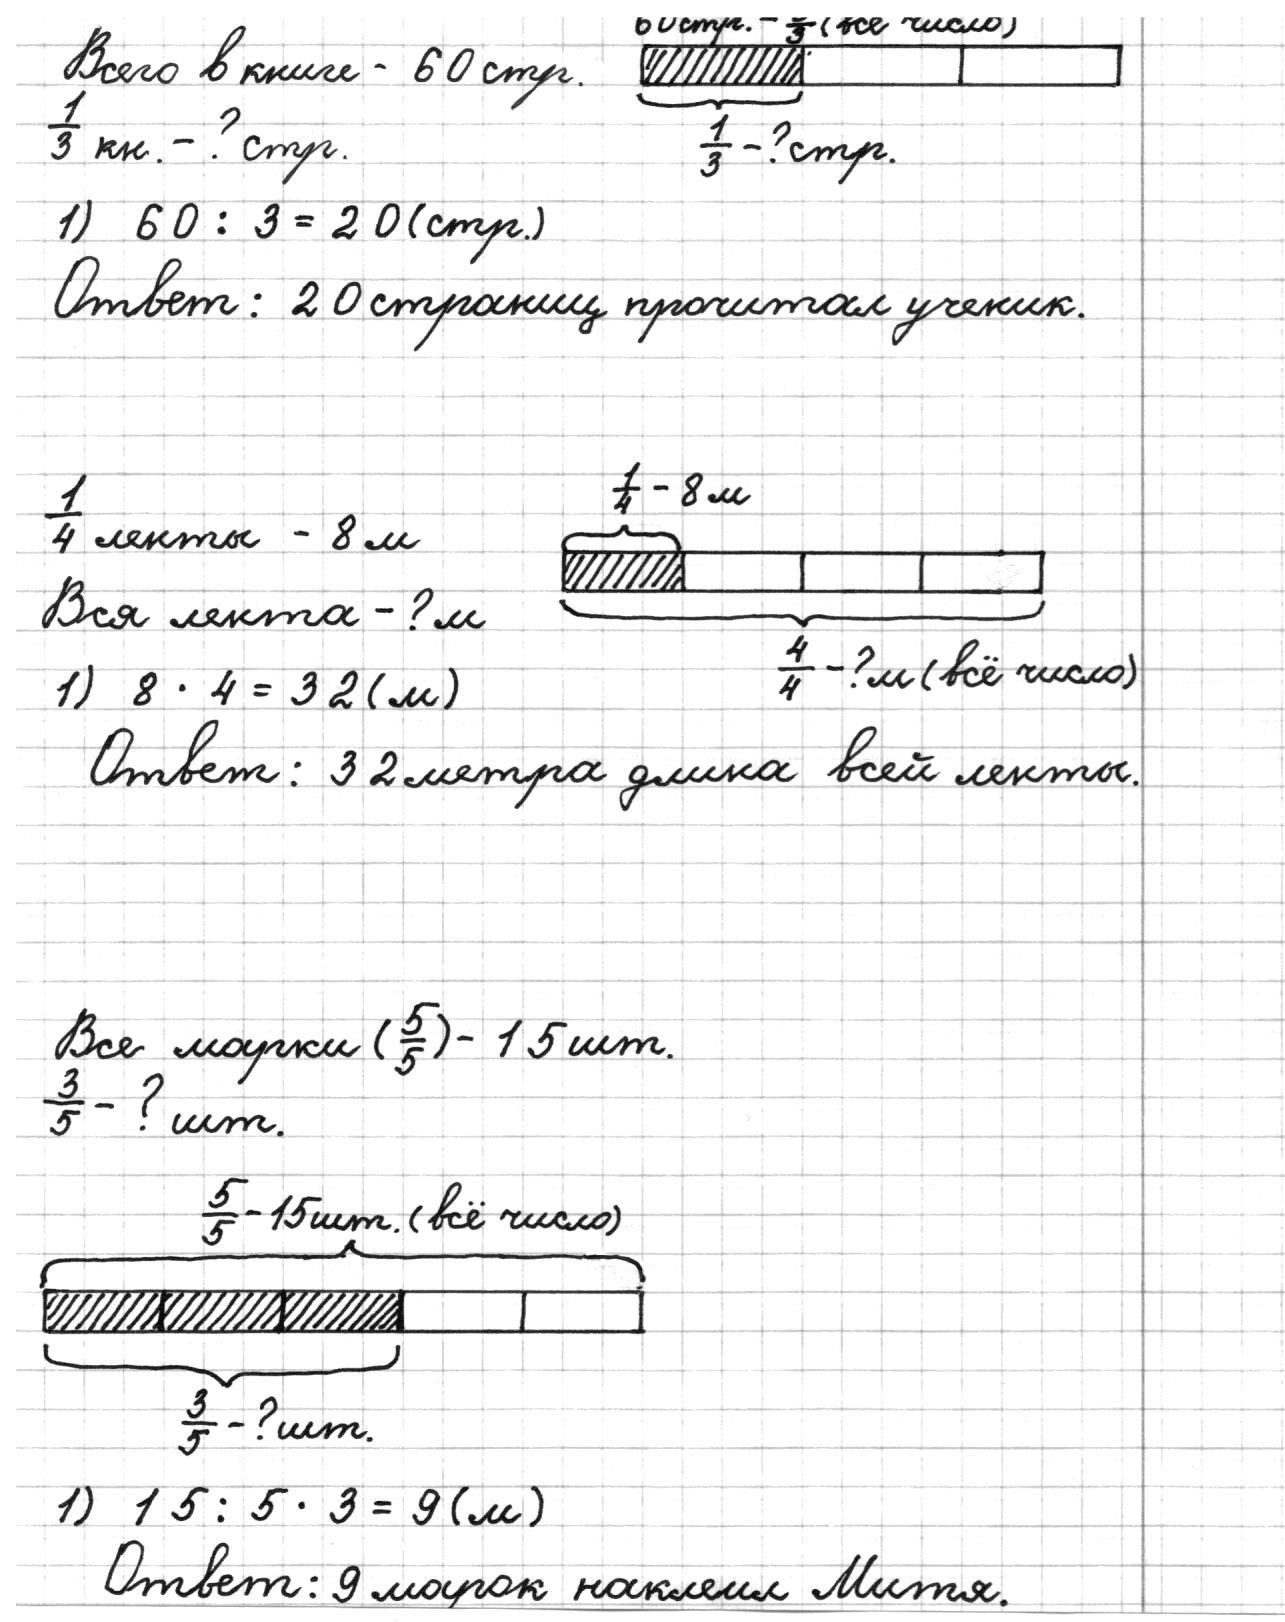 60стр. - 3/3 (всё число)
Всего в книге - 60 стр.
1/3 кн. - ? стр.
1/3 - ? стр.
1) 60 : 3 = 20 (стр.)
Ответ: 20 страниц прочитал ученик.
1/4 - 8 м
1/4 ленты - 8 м
Вся лента - ? м
4/4 - ? м (всё число)
1) 8 · 4 = 32 (м)
Ответ: 32 метра длина всей ленты.
Все марки (5/5) - 15 шт.
3/5 - ? шт.
5/5 - 15 шт. (всё число)
3/5 - ? шт.
1) 15 : 5 · 3 = 9 (м)
Ответ: 9 марок наклеил Митя.